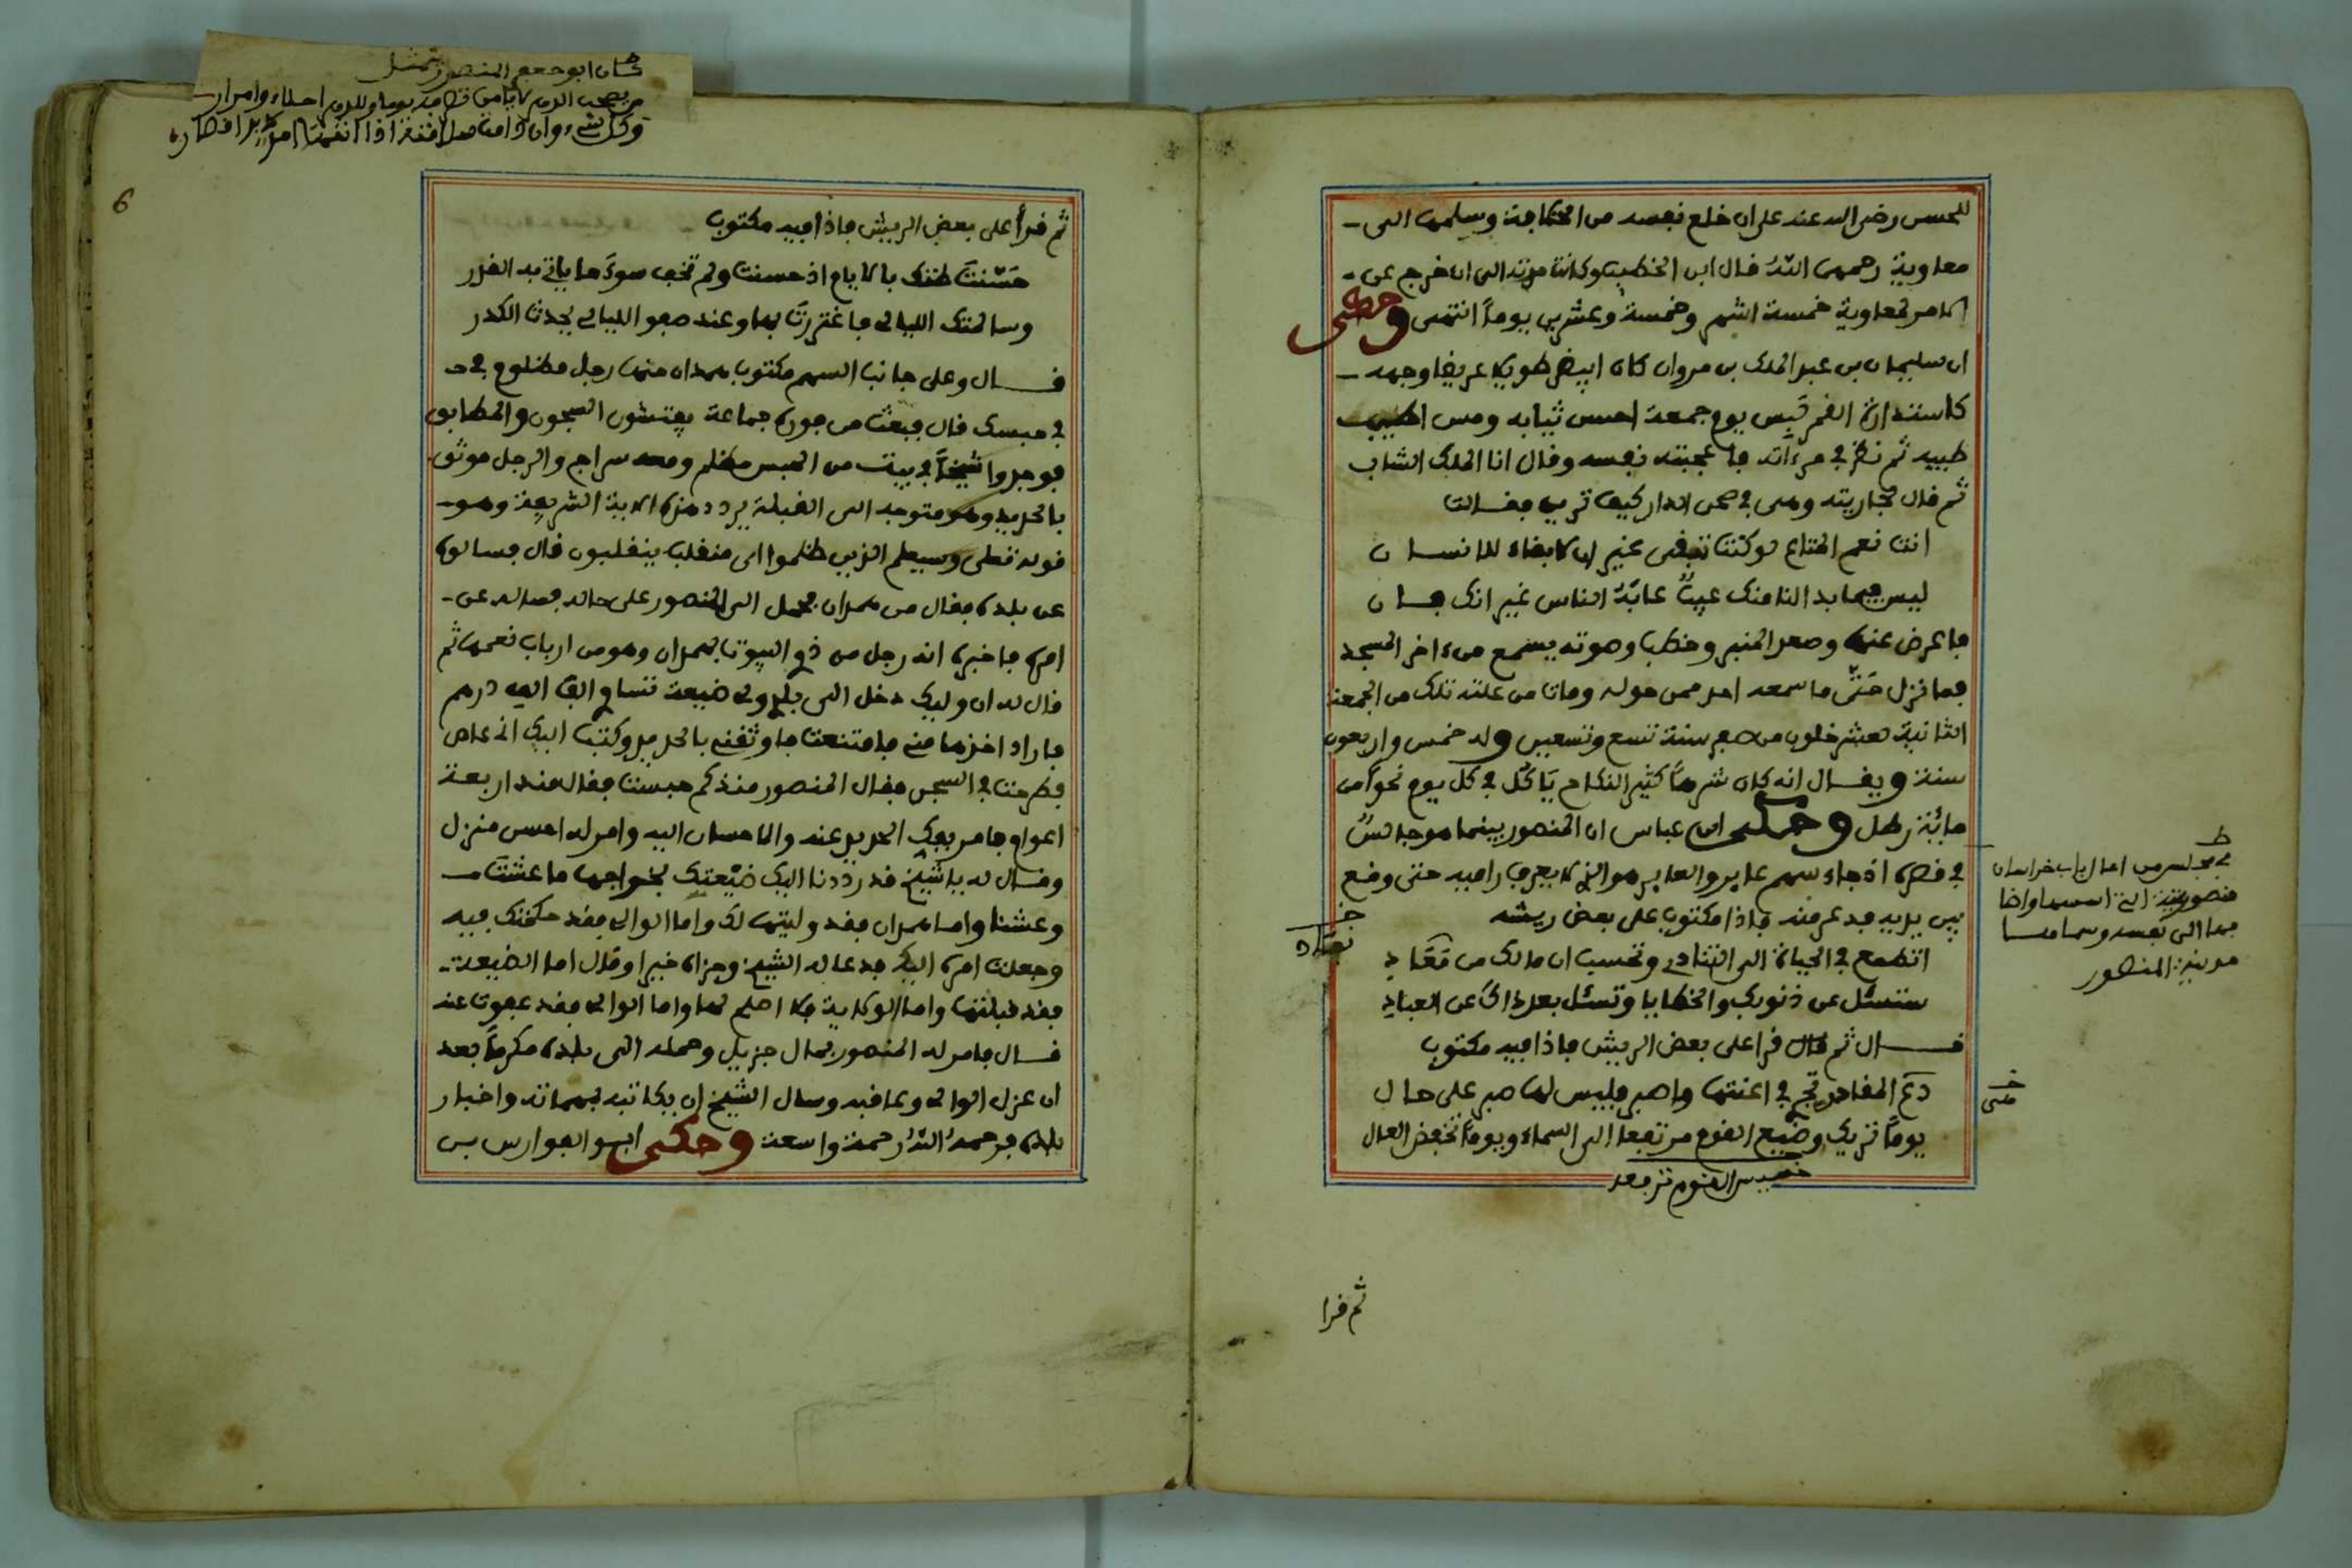 للحسن رضى الله عنه على ان خلع نفسه من الخلافة وسلمها الى
معاوية رحمهم الله قال ابن الخطيب وكانت مدته الى ان خرج عن
الامر لمعاوية خمسة اشهر وخمسة وعشرين يوماً انتهى وحكى
ان سليمان بن عبد الملك بن مروان كان ابيض طويلا عريضا وجهه
كاستدارة القمر لبس يوم جمعة احسن ثيابه ومس اطيب
طيبه ثم نظر في مرءاته فاعجبته نفسه وقال انا الملك الشاب
ثم قال لجاريته وهى في صحن الدار كيف ترين فقالت
انت نعم المتاع لو كنت تبقى غير ان لا بقاء للانسان
ليس فيما بدا لنا منك عيبٌ عابَهُ الناس غير انك فان
فاعرض عنها وصعد المنبر وخطب وصوته يسمع من ءاخر المسجد
فما نزل حتّى ما سمعه احد ممن حوله ومات من علته تلك من الجمعة
الثانية لعشر خلون من صفر سنة تسع وتسعين وله خمس واربعون
سنة ويقال انه كان شرهاً كثير النكاح يَاكُل في كل يوم نحواً من
مائة رطل وحكى ابن عباس ان المنصور بينما هو جالسٌ
في قصره اذ جاء سهم عاير والعاير هو الذي لا يعرف راميه حتى وقع
بين يديه فذعر منه فاذا مكتوب على بعض ريشه
اتطمع في الحياة الى التنادي وتحسب ان مالك من مَعَادِ
ستسئل عن ذنوبك والخطايا وتسئل بعد ذاك عن العبادِ
قال ثم قال قرا على بعض الريش فاذا فيه مكتوب
دع المقادير تجر في اعنتها واصبر فليس لها صبر على حال
يوماً تريك وضيع القوم مرتفعا الى السماء ويوماً تخفض العال
خسيس القوم ترفعه
خـ
نفاد
في مجلس من اعال باب خراسان
من مدينته التى اسسها واضا
فها الى نفسه وسماها
مدينة المنصور
ثم قرا
كان ابو جعفر المنصور يتمثل
ثم قرأ على بعض الريش فاذا فيه مكتوب
حَسّنتَ ظنك بالايام اذ حسنت ولم تخف سوءَ ما ياتي به القدر
وسالمتك الليالى فاغتررتَ بها وعند صفو الليالى يحدث الكدر
قال وعلى جانب السهم مكتوب همدان منها رجل مظلوم في
في حبسك قال فبعث من فوره جماعة يفتشون السجون والمطابق
فوجدوا شيخاً في بيت من الحبس مظلم ومعه سراج والرجل موثوق
بالحديد وهو متوجه الى القبلة يردد هذه الاية الشريفة وهو
قوله تعلى وسيعلم الذين ظلموا اى منقلب ينقلبون قال فسالوه
عن بلده فقال من همدان فحمل الى المنصور على حاله فساله عن
امره فاخبره انه رجل من ذوي البيوت بهمدان وهو من ارباب نعمها ثم
قال له ان وليك دخل الى بلدي ولى ضيعة تساوي الف الف درهم
فاراد اخذها منى فامتنعت فاوثقنى بالحديد وكتب اليك انى عاص
فطرحت في السجن فقال المنصور منذ كم حبست فقال منذ اربعة
اعوام فامر بفك الحديد عنه والاحسان اليه وامر له احسن منزل
وقال له يا شيخ قد رددنا اليك ضيْعتك بخراجها ما عشتَ
وعشنا واما همدان فقد وليتها لك واما الوالى فقد حكمتك فيه
وجعلت امره اليك فدعا له الشيخ وجزاه خيرا وقال اما الضيعة
فقد قبلتها واما الولاية فلا اصلح لها واما الوالى فقد عفوت عنه
قال فامر له المنصور بمال جزيل وحمله الى بلده مكرماً بعد
ان عزل الوالى وعاقبه وسال الشيخ ان يكاتبه بمهماته واخبار
بلده فرحمهُ اللهُ رحمة واسعة وحكى ابو الفوارس بن
6